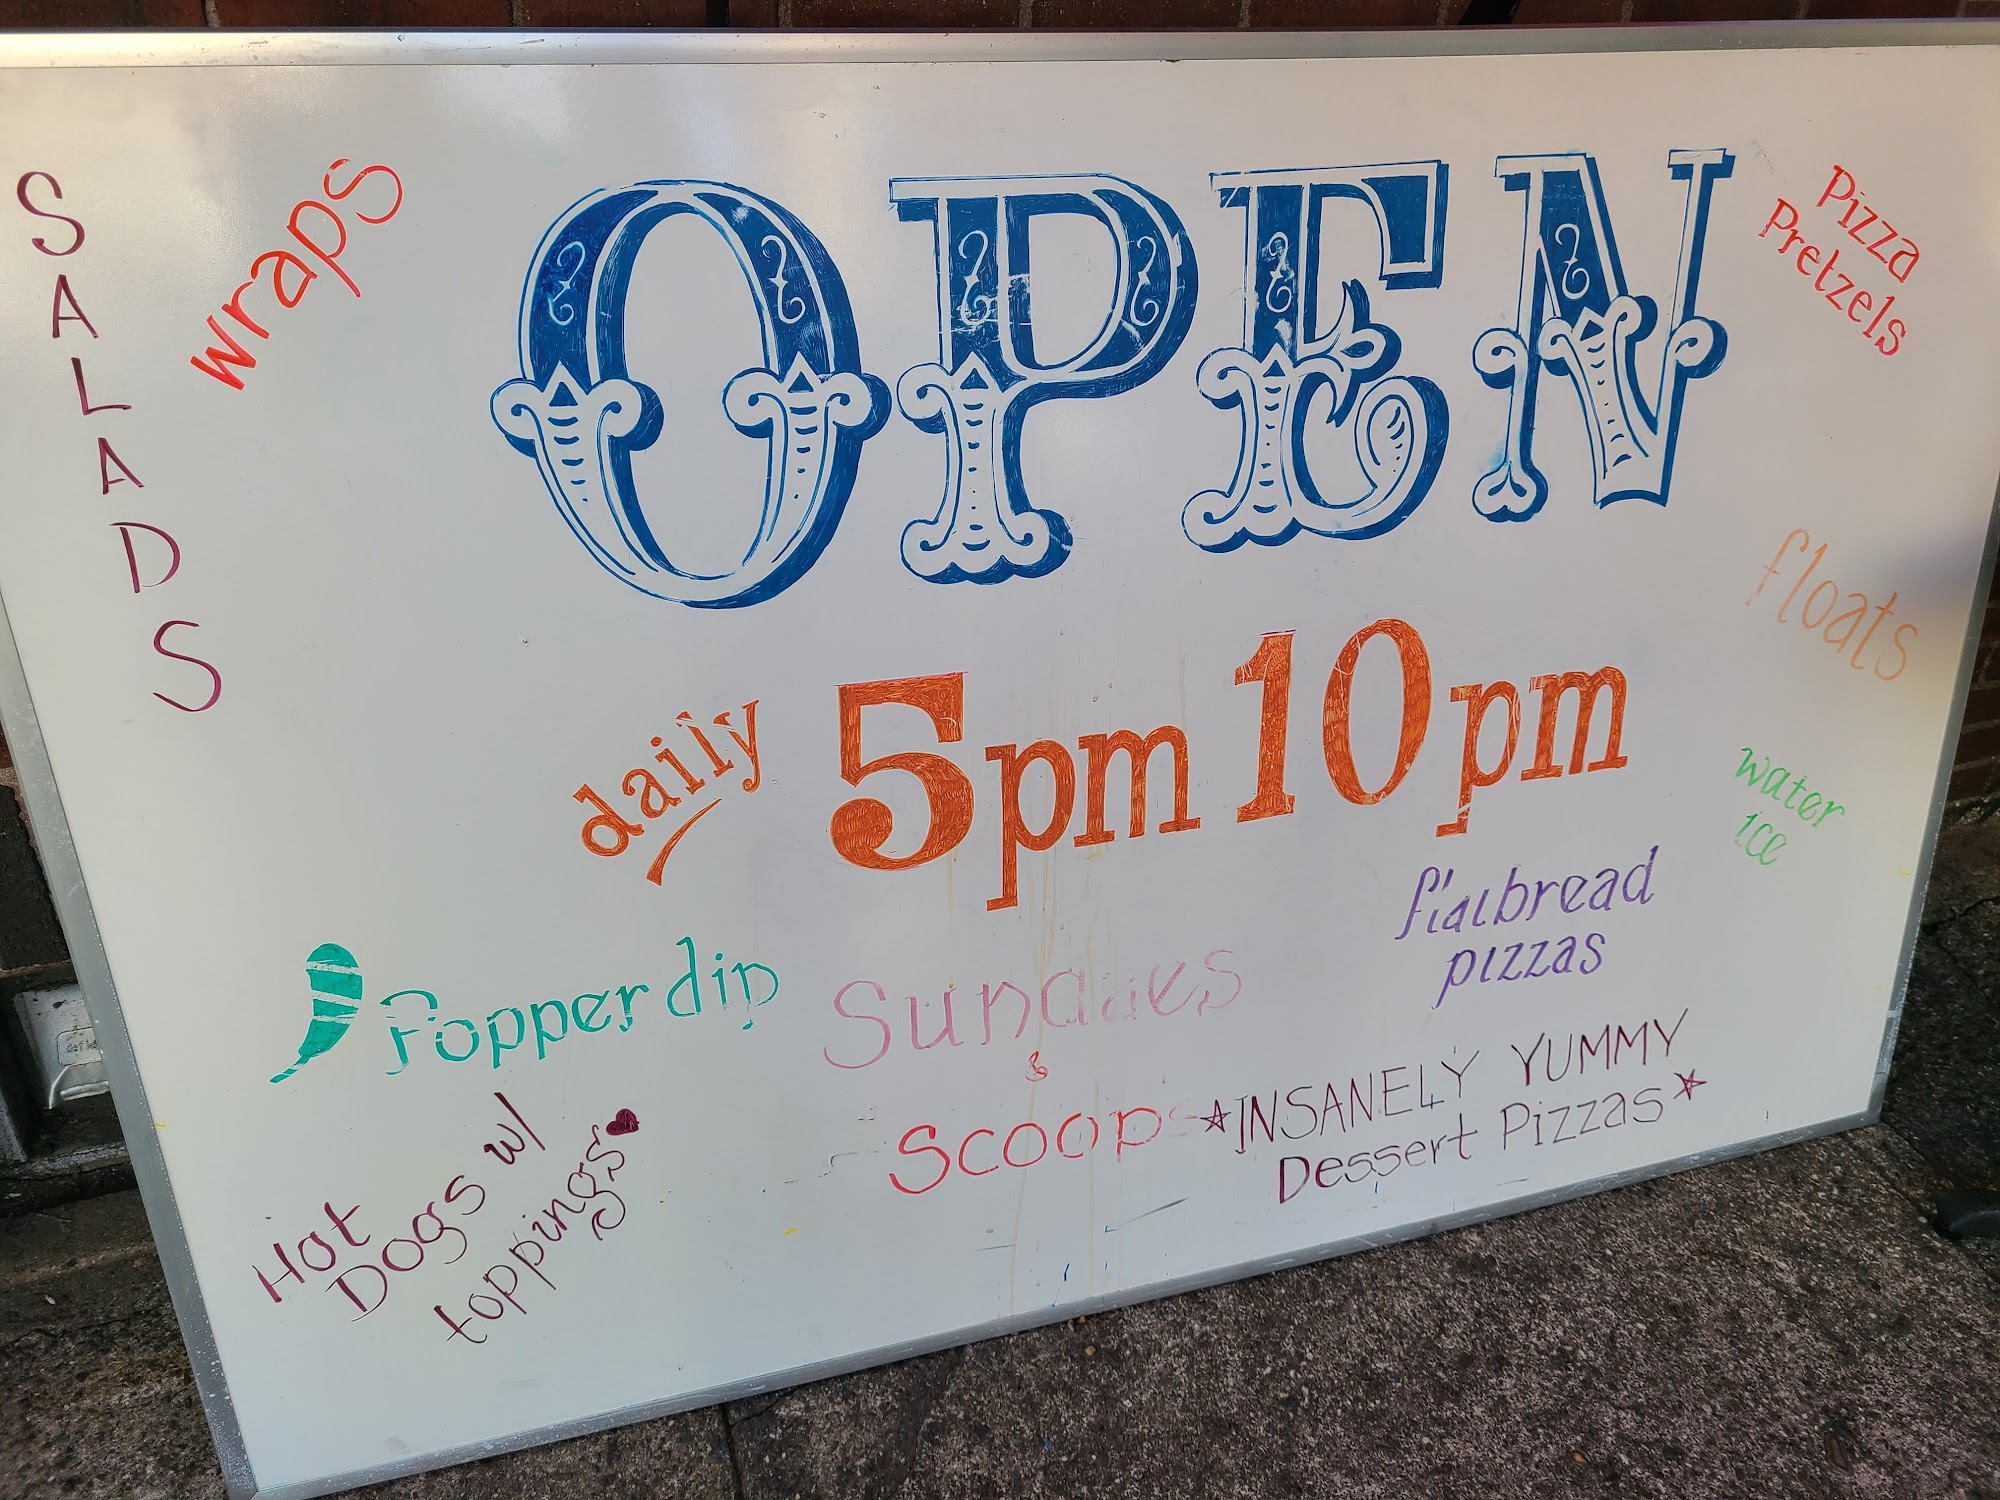 SALADS
wraps
OPEN
Pizza
Pretzels
floats
daily 5pm 10pm
water
ice
flatbread
pizzas
Popper dip
Sundaes
&
Scoops
*INSANELY YUMMY
Dessert Pizzas*
Hot
Dogs w/
toppings